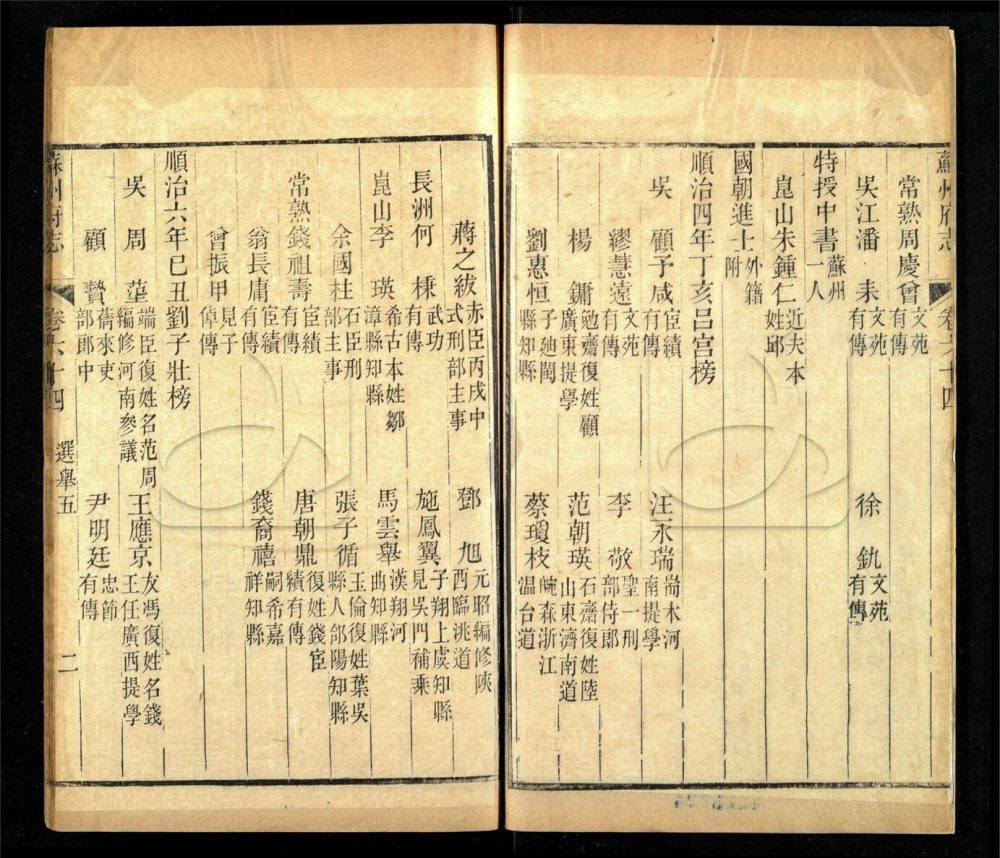 蘇州府志 卷六十四
常熟周慶曾 文苑有傳
吳江潘耒 文苑有傳 徐釚 文苑有傳
特授中書 蘇州一人
崑山朱鍾仁 近夫本姓邱
國朝進士 外籍附
順治四年丁亥呂宮榜
吳 顧予咸 宦績有傳 汪永瑞 耑木河南提學
繆慧遠 文苑有傳 李敬 聖一刑部侍郎
楊鏞 勉齋復姓顧廣東提學 范朝瑛 石齋復姓陸山東濟南道
劉惠恒 子廸閩縣知縣 蔡瓊枝 森浙江温台道
蔣之紱 赤臣丙戌中式刑部主事 鄧旭 元昭編修陝西臨洮道
長洲何棅 武功有傳 施鳳翼 子翔上虞知縣見吳門補乘
崑山李瑛 希古本姓鄒漳縣知縣 馬雲舉 漢翔河曲知縣
余國柱 石臣刑部主事 張子循 玉倫復姓葉吳縣人郃陽知縣
常熟錢祖壽 宦績有傳 唐朝鼎 復姓錢宦績有傳
翁長庸 宦績有傳 錢裔禧 嗣希嘉祥知縣
曾振甲 見子倬傳
順治六年己丑劉子壯榜
吳 周𦶜 端臣復姓名范周編修河南參議 王應京 友馮復姓名錢王任廣西提學
顧贄 蒨來吏部郎中 尹明廷 忠節有傳
蘇州府志 卷六十四 選舉五 二